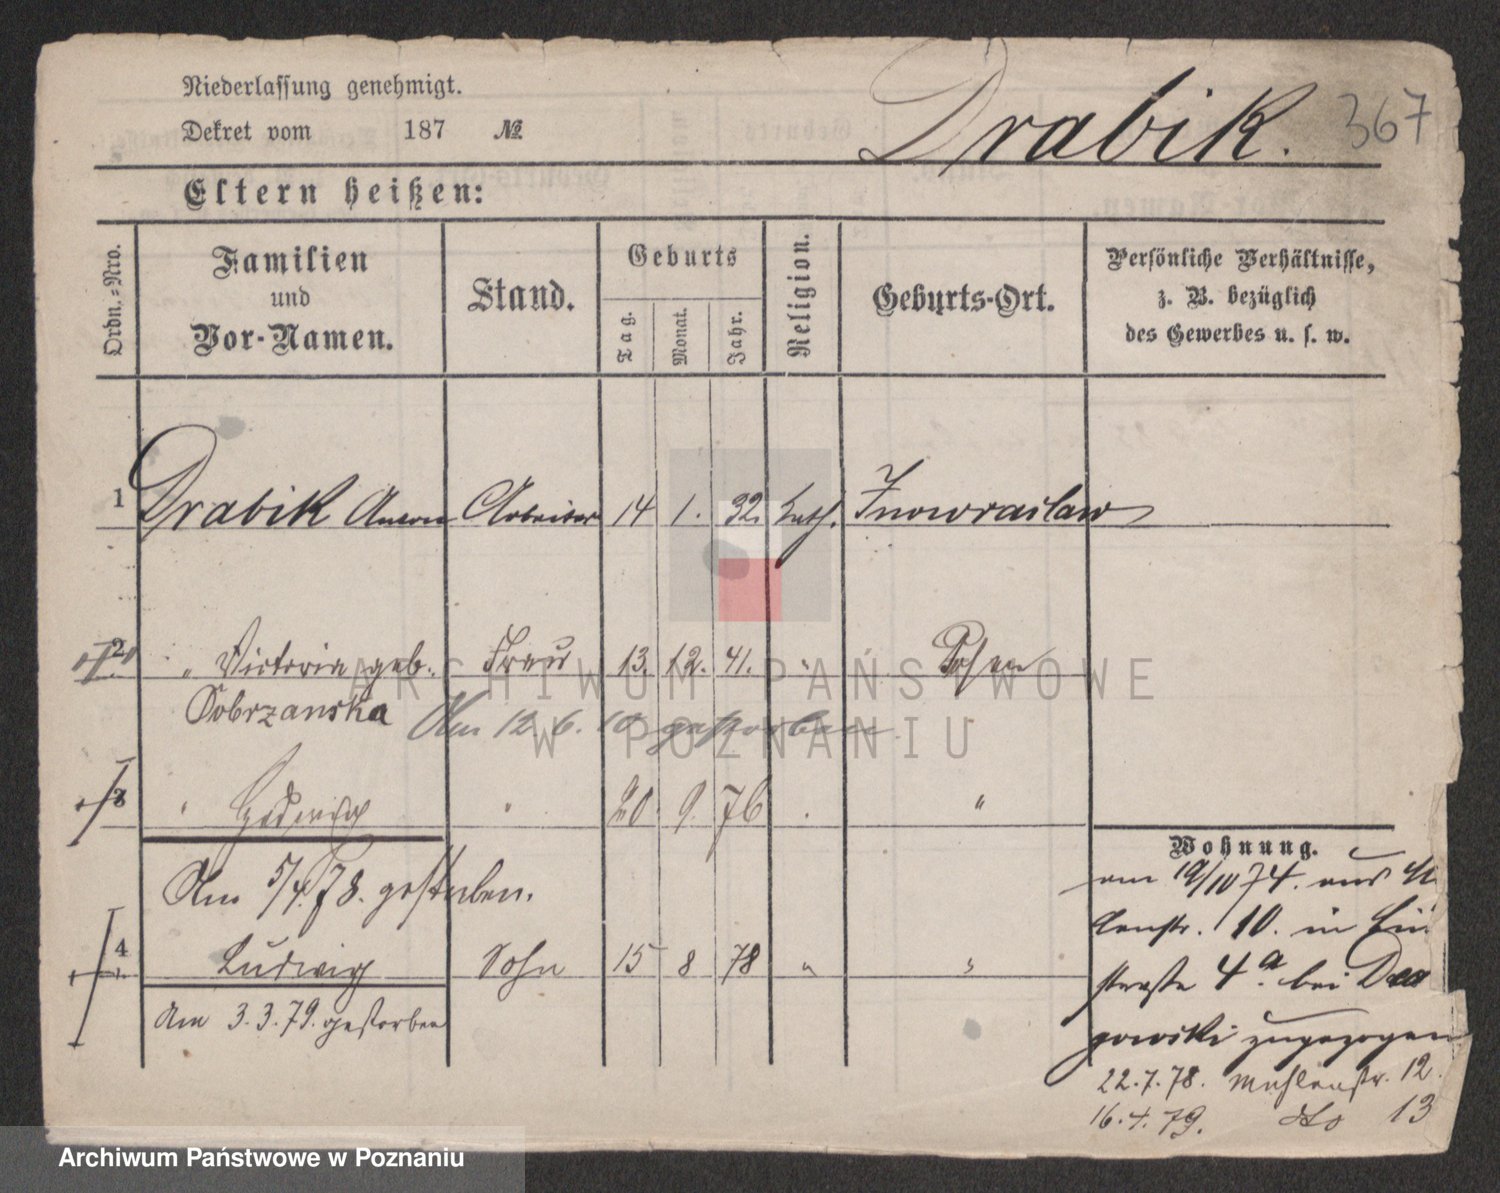 Niederlassung genehmigt.
Dekret vom 187 №
Drabik. 367
Eltern heißen:
Ordn.-Nro.
Familien und Vor-Namen.
Stand.
Geburts
Tag. Monat. Jahr.
Religion.
Geburts-Ort.
Persönliche Verhältnisse,
z. B. bezüglich
des Gewerbes u. s. w.
1 Drabik Anton Arbeiter 14 1. 32. kath. Inowraclaw
2 " Victoria geb. Frau 13. 12. 41. " Posen
Dobrzanska Am 12. 6. 10 gestorben.
3 " Hedwig " 20. 9. 76 "
Am 5/4. 78. gestorben.
4 Ludwig Sohn 15 8 78 " "
Am 3.3.79. gestorben
Wohnung.
am 19/10 74. aus
10. in
straße 4a. bei
gowski zugezogen
22.7.78. Muhlenstr. 12.
16.4.79. dto 13
ARCHIWUM PAŃSTWOWE
W POZNANIU
Archiwum Państwowe w Poznaniu